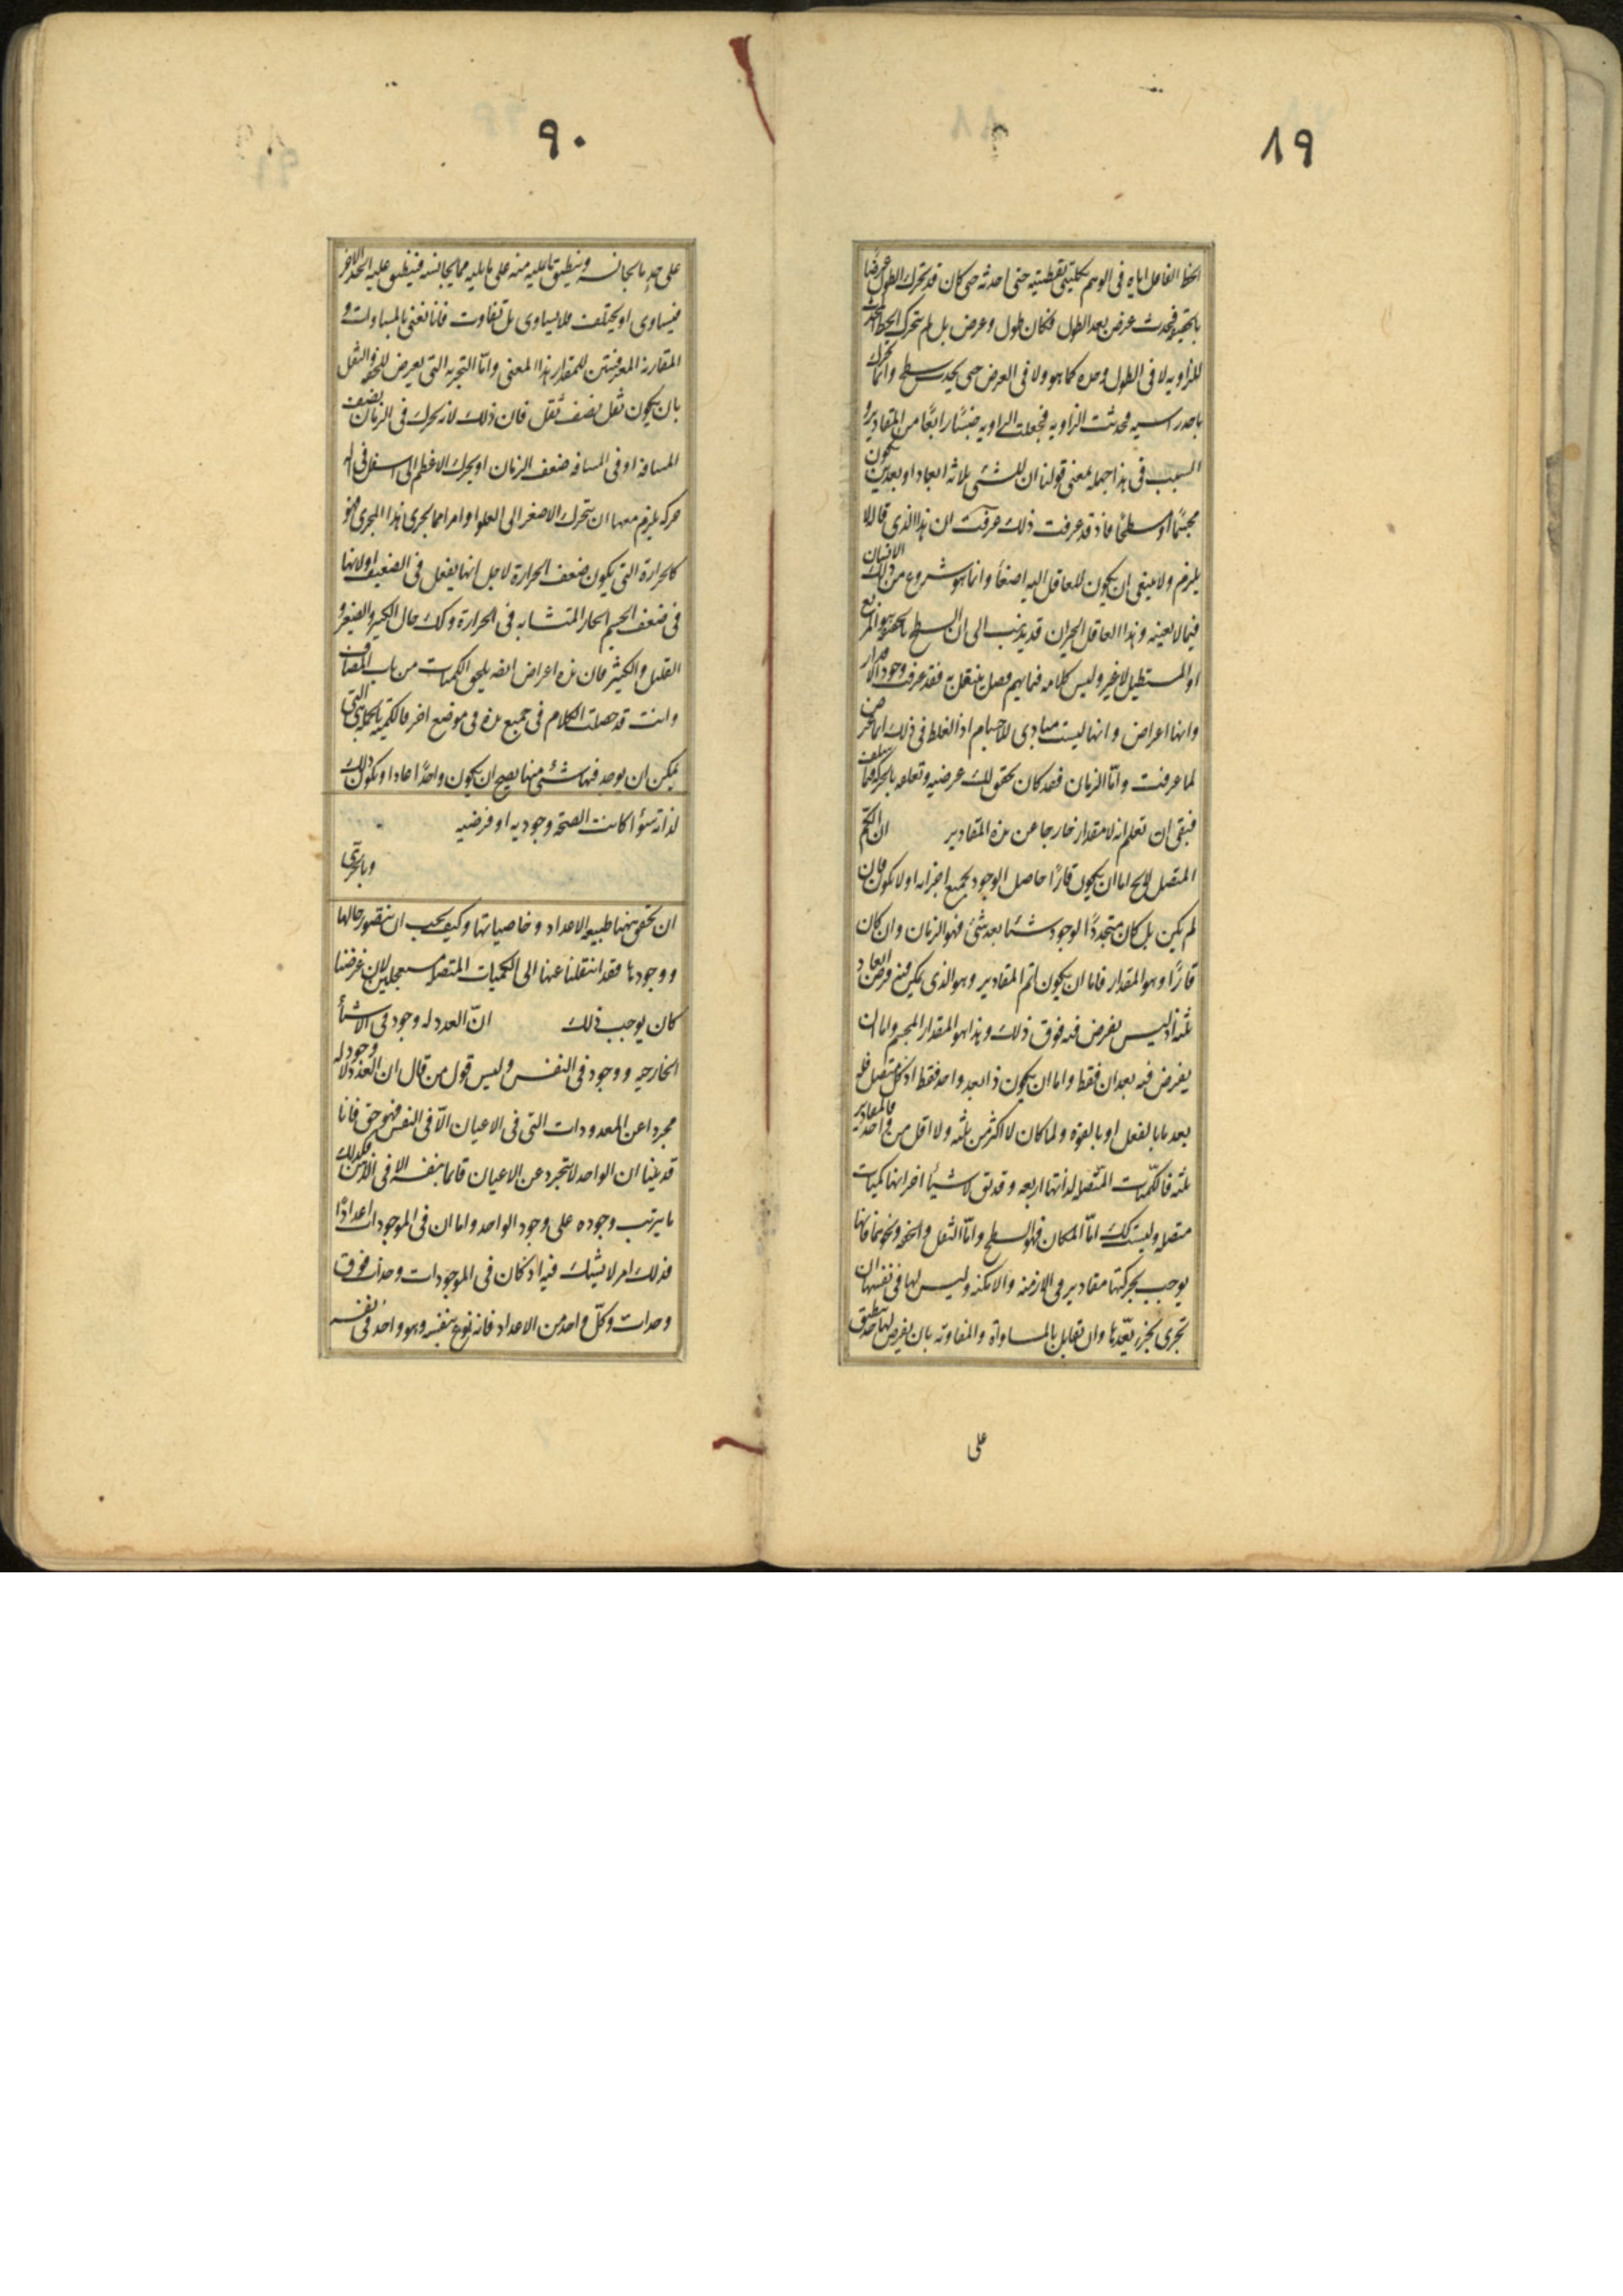 ٨٩
الخط الفاعل اياه فى الوهم بكليتى نقطتيه حتى احدثه حتى كان قد تحرك الطول عرضا
بالحقيقه فحدث عرض بعد الطول فكان طول وعرض بل لم يتحرك الخط المحدث
للزاويه لا فى الطول وحده كما هو ولا فى العرض حتى يحدث سطح وانما تحرك
باحد راسيه فحدثت الزاويه فجعلت الزاويه جنسًا رابعًا من المقادير و
السبب فى هذا جهله معنى قولنا ان للشئ ثلاثه ابعاد او بعدين حتى يكون
مجسمًا او سطحًا فاذ قد عرفت ذلك عرفت ان هذا الذى قاله لا
يلزم ولا ينبغى ان يكون للعاقل اليه اصغاء وانما هو شروع من ذلك الانسان
فيما لا يعنيه وهذا العاقل الحيران قد يذهب الى ان السطح بالحقيقه هو المربع
او المستطيل لا غير وليس كلامه فيما يهم فصل يشتغل به فقد عرفت وجود الاقدار
وانها اعراض وانها ليست مبادى للاجسام اذ الغلط فى ذلك انما عرض
لما عرفت وامّا الزمان فقد كان تحقق لك عرضيه وتعلقه بالحركه فيما سلف
فبقى ان تعلم انه لا مقدار خارجا عن هذه المقادير ان الكم
المتصل لا يخ اما ان يكون قارًا حاصل الوجود بجميع اجزايه او لا يكون فان
لم يكن بل كان متجددًا الوجود شئا بعد شئ فهو الزمان وان كان
قارًا وهو المقدار فاما ان يكون اتم المقادير وهو الذى يمكن فيه فرض ابعاد
ثلثه اذ ليس يفرض فيه فوق ذلك وهذا هو المقدار المجسم واما ان
يفرض فيه بعدان فقط واما ان يكون ذا بعد واحد فقط اذ كل متصل فله
بعد ما بالفعل او بالقوه ولما كان لا اكثر من ثلثه ولا اقل من واحد فالمقادير
ثلثه فالكميّات المتصله لذاتها اربعه وقد يق لاشيأ اخر انها كميات
متصله وليست كك امّا المكان فهو السطح وامّا الثقل والخفه ونحوهما فانها
يوجب بحركتها مقادير فى الازمنه والامكنه وليس لها فى نفسها ان
تجرى بجزء يعّدها وان تقابل بالمساواة والمفاوته بان يفرض لها حد ينطبق
على
٩٠
على حد ما يجانسه وينطبق ما يليه منه على ما يليه مما يجانسه فينطبق عليه الحد الاخر
فيساوى او يختلف فلا يساوى بل تفاوت فانا نعنى بالمساوات و
المقارنه المعرفتين للمقدار هذا المعنى وامّا التجزيه التى يعرض للخفه والثقل
بان يكون ثقل نصف ثقل فان ذلك لانه يحرك فى الزمان نصف
المسافه او فى المسافه ضعف الزمان او يحرك الاعظم الى اسفل فى اله
حركه يلزم معها ان يتحرك الاصغر الى العلو او امر مما يجرى هذا المجرى فهو
كالحرارة التى يكون ضعف الحرارة لاجل انها يفعل فى الضعيف او لانها
فى ضعف الجسم الحار المتشابه فى الحرارة وكك حال الكبير والصغير و
القليل والكثير فان هذه اعراض ايضه يلحق الكميات من باب المضاف
وانت قد حصلت الكلام فى جميع هذه فى موضع اخر فالكميه بالجمله هى التى
يمكن ان يوجد فيها شئ منها يصح ان يكون واحدًا عادا ويكون ذلك
لذاته سوأ كانت الصحّه وجوديه او فرضيه
وبالحرى
ان تحقق ههنا طبيعه الاعداد وخاصياتها وكيف يجب ان يتصور حالها
ووجودها فقد انتقلنا عنها الى الكميات المتصله مستعجلين لان غرضنا
كان يوجب ذلك انّ العدد له وجود فى الاشيأ
الخارجيه ووجود فى النفس وليس قول من قال ان العدد لا وجود له
مجردا عن المعدودات التى فى الاعيان الّا فى النفس فهو حق فانا
قد بينا ان الواحد لا يتجرد عن الاعيان قائما بنفسه الا فى الذهن فكذلك
ما يترتب وجوده على وجود الواحد واما ان فى الموجودات اعدادًا
فذلك امر لا يشك فيه اذ كان فى الموجودات وحدات فوق
وحدات وكلّ واحد من الاعداد فانه نوع بنفسه وهو واحد فى نفسه